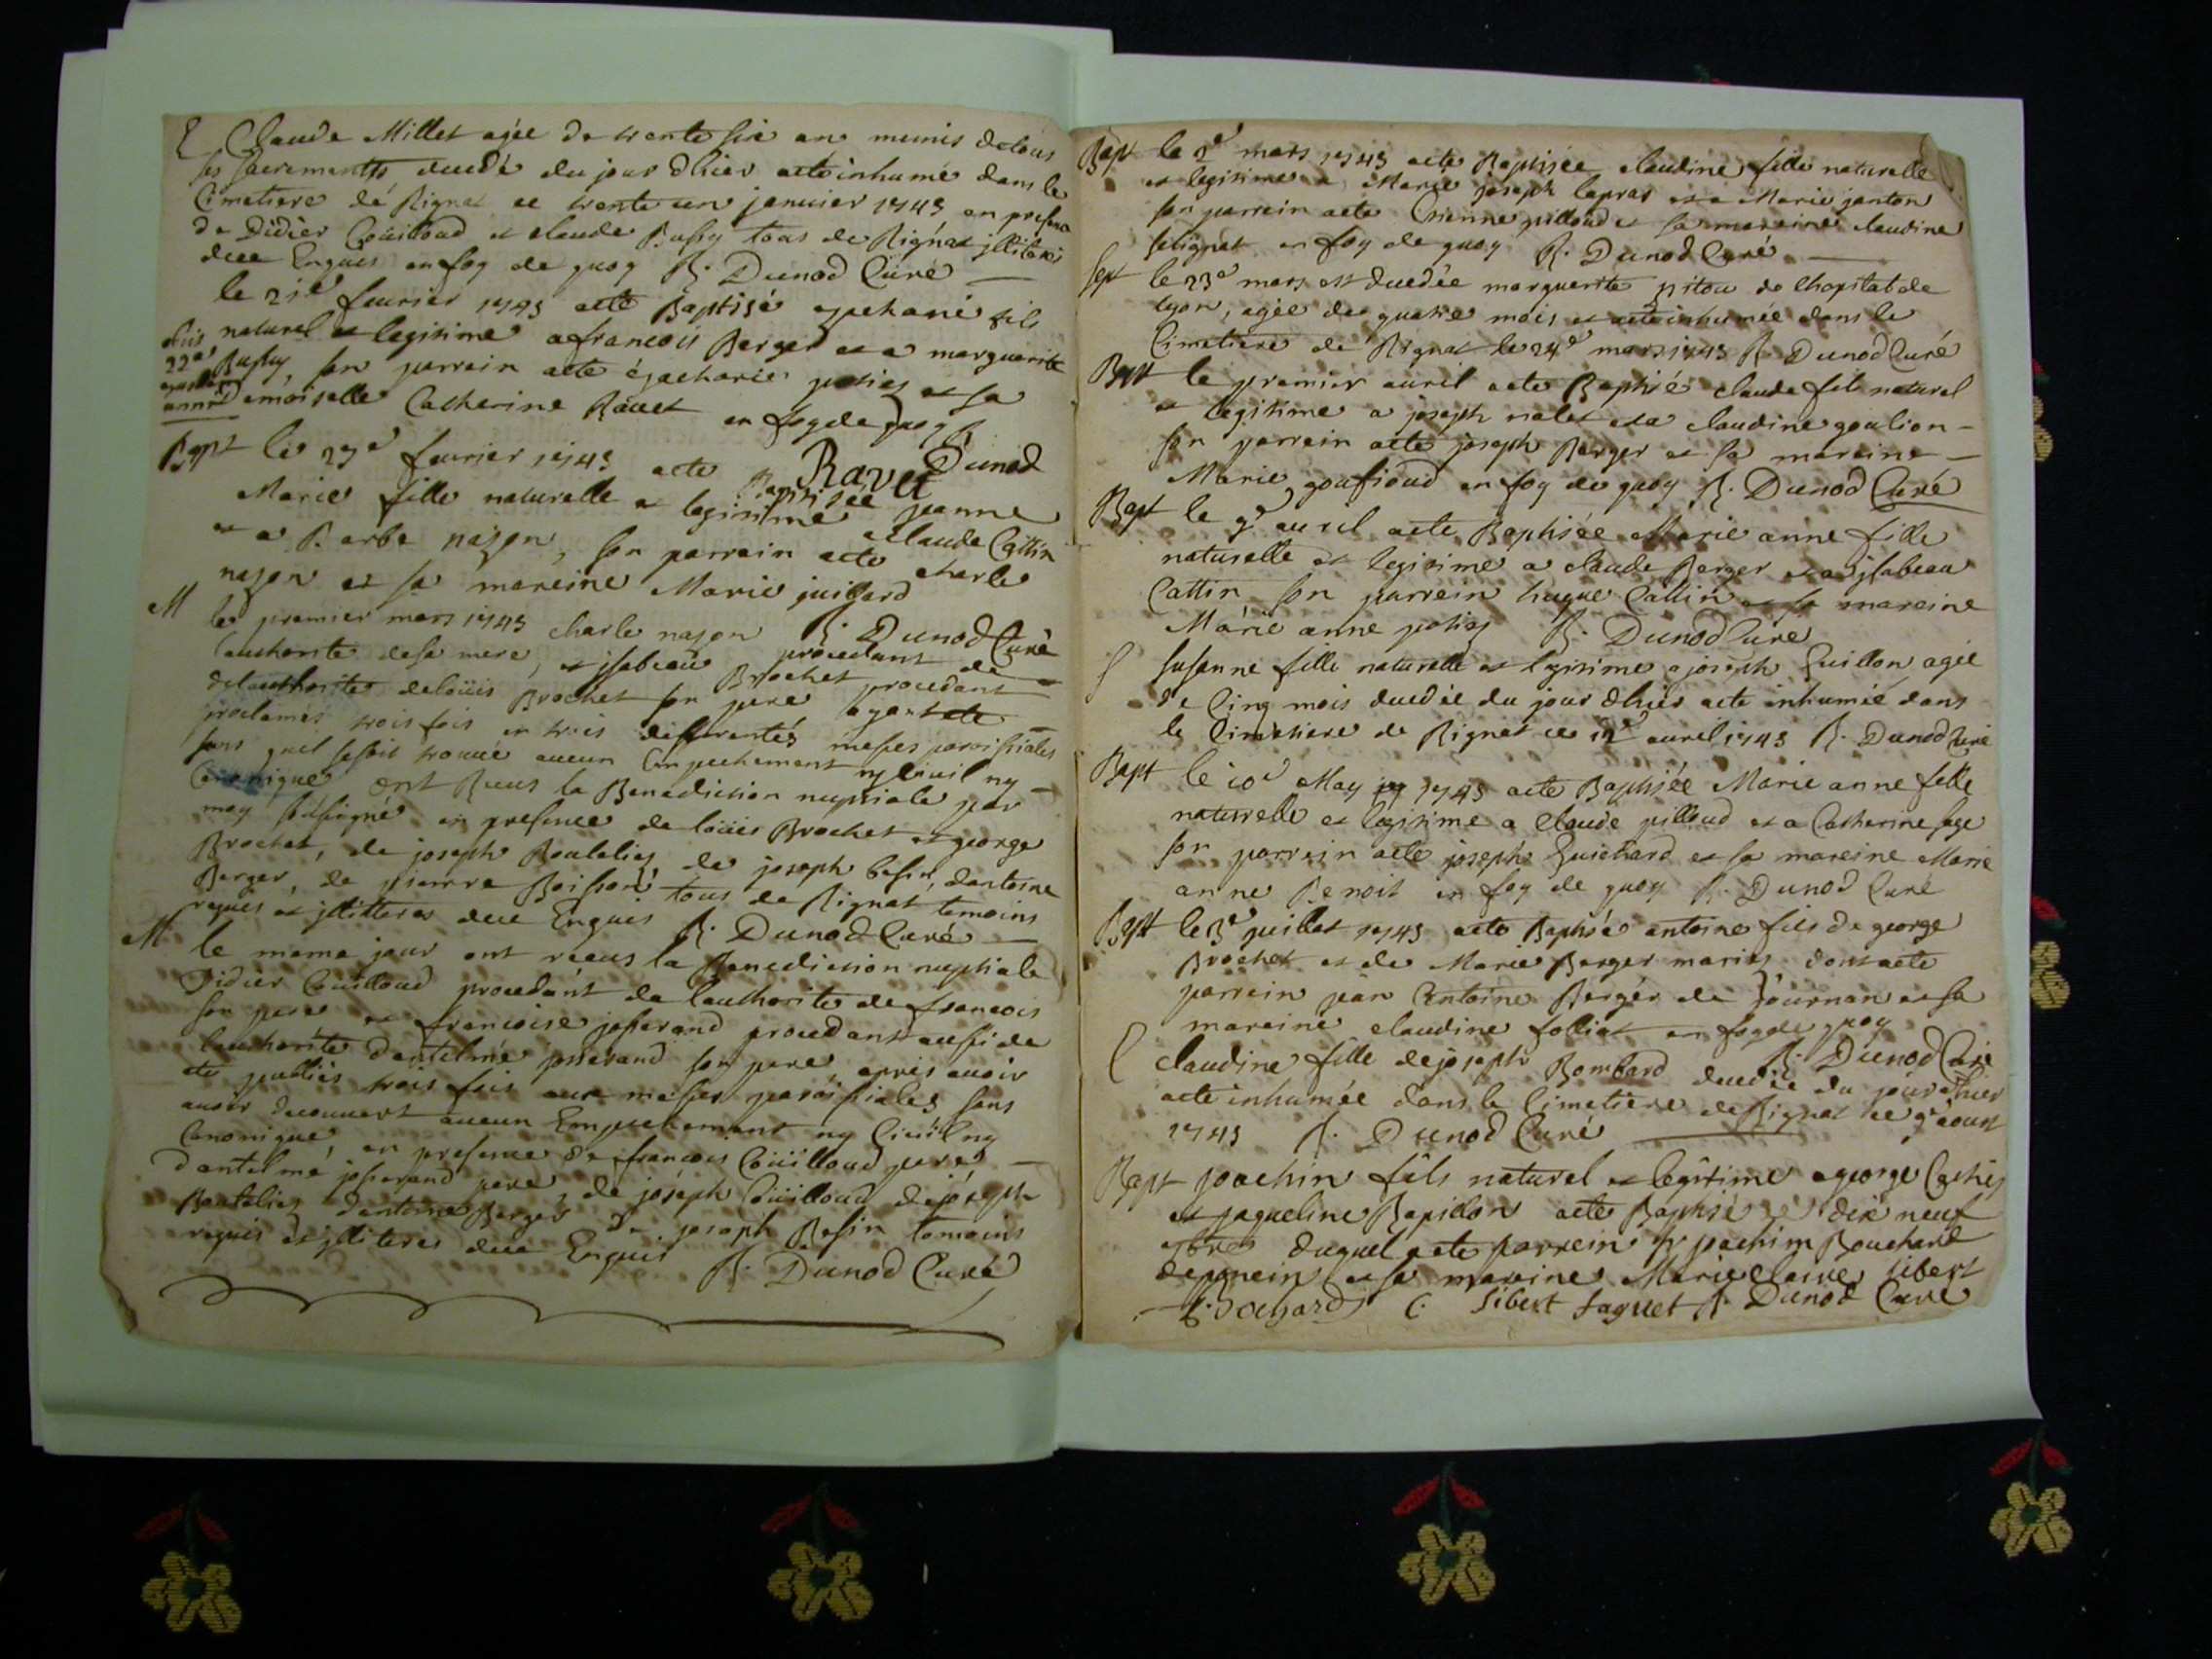 Claude Millet agée de trente six an munis de tous
ses sacrements decedé du jour dhier aeté inhumé dans le
Cimetiere de Rignat ce trente un janvier 1743 en presence
de Didier Coüilloud et claude Bussy tous de Rignat jlliteres
dece Enquis en foy de quoy R. Dunod Curé
le 21e fevrier 1743 aeté Baptisé fils
naturel et legitime a francois Berger et a marguerite
Bussy, son parrein aeté et sa
Demoiselle Catherine Ravet en foy de quoy
Ravet Dunod
Bapt le 27e fevrier 1743 aeté Baptisée jeanne
Marie fille naturelle et legitime a Claude Cattin
et a Barbe najon, son parrein aeté charle
najon et sa mareine Marie juillard
R. Dunod Curé
M le premier mars 1743 charle najon procedant de
lauthorite de sa mere, et jsabeau Brochet procedant
de lauthorite de loüis Brochet son pere ayant ete
proclamés trois fois en trois differentes messes paroissiales
sans quil se soit trouvé aucun Empechement ny civil ny
Canonique ont Recus la Benediction nuptiale par
moy soussigné en presence de loüis Brochet et george
Brochet, de joseph Boutelier, de joseph besin, dantoine
Berger, de pierre Boisson tous de Rignat temoins
requis et jllitteres dece Enquis R. Dunod Curé
M le meme jour ont recus la Benediction nuptiale
Didier Coüilloud procedant de lauthorite de francois
son pere et francoise josserand procedant aussi de
lauthorite dantelme josserand son pere, apres avoir
ete publiés trois fois aux messes paroissiales sans
avoir decouvert aucun Empechement ny Civil ny
Canonique en presence de francois Coüilloud pere
dantelme josserand pere, de joseph Coüilloud de joseph
Boutelier dantoine Berger de joseph Besin temoins
requis et jlliteres dece Enquis
R. Dunod Curé
Bapt le 2e mars 1743 aeté Baptisée claudine fille naturelle
et legitime a Marie joseph lepras et a Marie janton
son parrein aeté Etienne pilloud et sa mareine claudine
en foy de quoy R. Dunod Curé
Sept le 23e mars est decedée marguerite pitou de lhopital de
lyon, agée de quatre mois et aeté inhumée dans le
Cimetiere de Rignat le 24e mars 1743 R. Dunod Curé
Bapt le premier avril aeté Baptisé claude fils naturel
et legitime a joseph nalet et a claudine goulion
son parrein aeté joseph Berger et sa mareine
Marie goussoud en foy de quoy R. Dunod Curé
Bapt le 9e avril aeté Baptisée Marie anne fille
naturelle et legitime a claude Berger et a jsabeau
Cattin son parrein hugue Cattin et sa mareine
Marie anne R. Dunod Curé
S Susanne fille naturelle et legitime a joseph Guillon agée
de Cinq mois decedée du jour dhier aeté inhumée dans
le Cimetiere de Rignat ce 12e avril 1743 R. Dunod Curé
Bapt le 10e May 1743 aeté Baptisée Marie anne fille
naturelle et legitime a Claude pilloud et a Catherine sage
son parrein aeté joseph Guichard et sa mareine Marie
anne Benoit en foy de quoy R. Dunod Curé
Bapt le 3e juillet 1743 aeté Baptisé antoine fils de george
Brochet et de Marie Berger mariés dont aeté
parrein jean Antoine Berger de Journan et sa
mareine claudine folliat en foy de quoy
R. Dunod Curé
claudine fille de joseph Bombard decedée du jour dhier
aeté inhumée dans le Cimetiere de Rignat ce 9e aoust
1743 R. Dunod Curé
Bapt joachin fils naturel et legitime a george
et jaqueline Rapidon aeté Baptisé le dix neuf
duquel aeté parrein Sr joachim Bouchard
et sa mareine Marie claire sibert
C. Sibert Saguet R. Dunod Curé